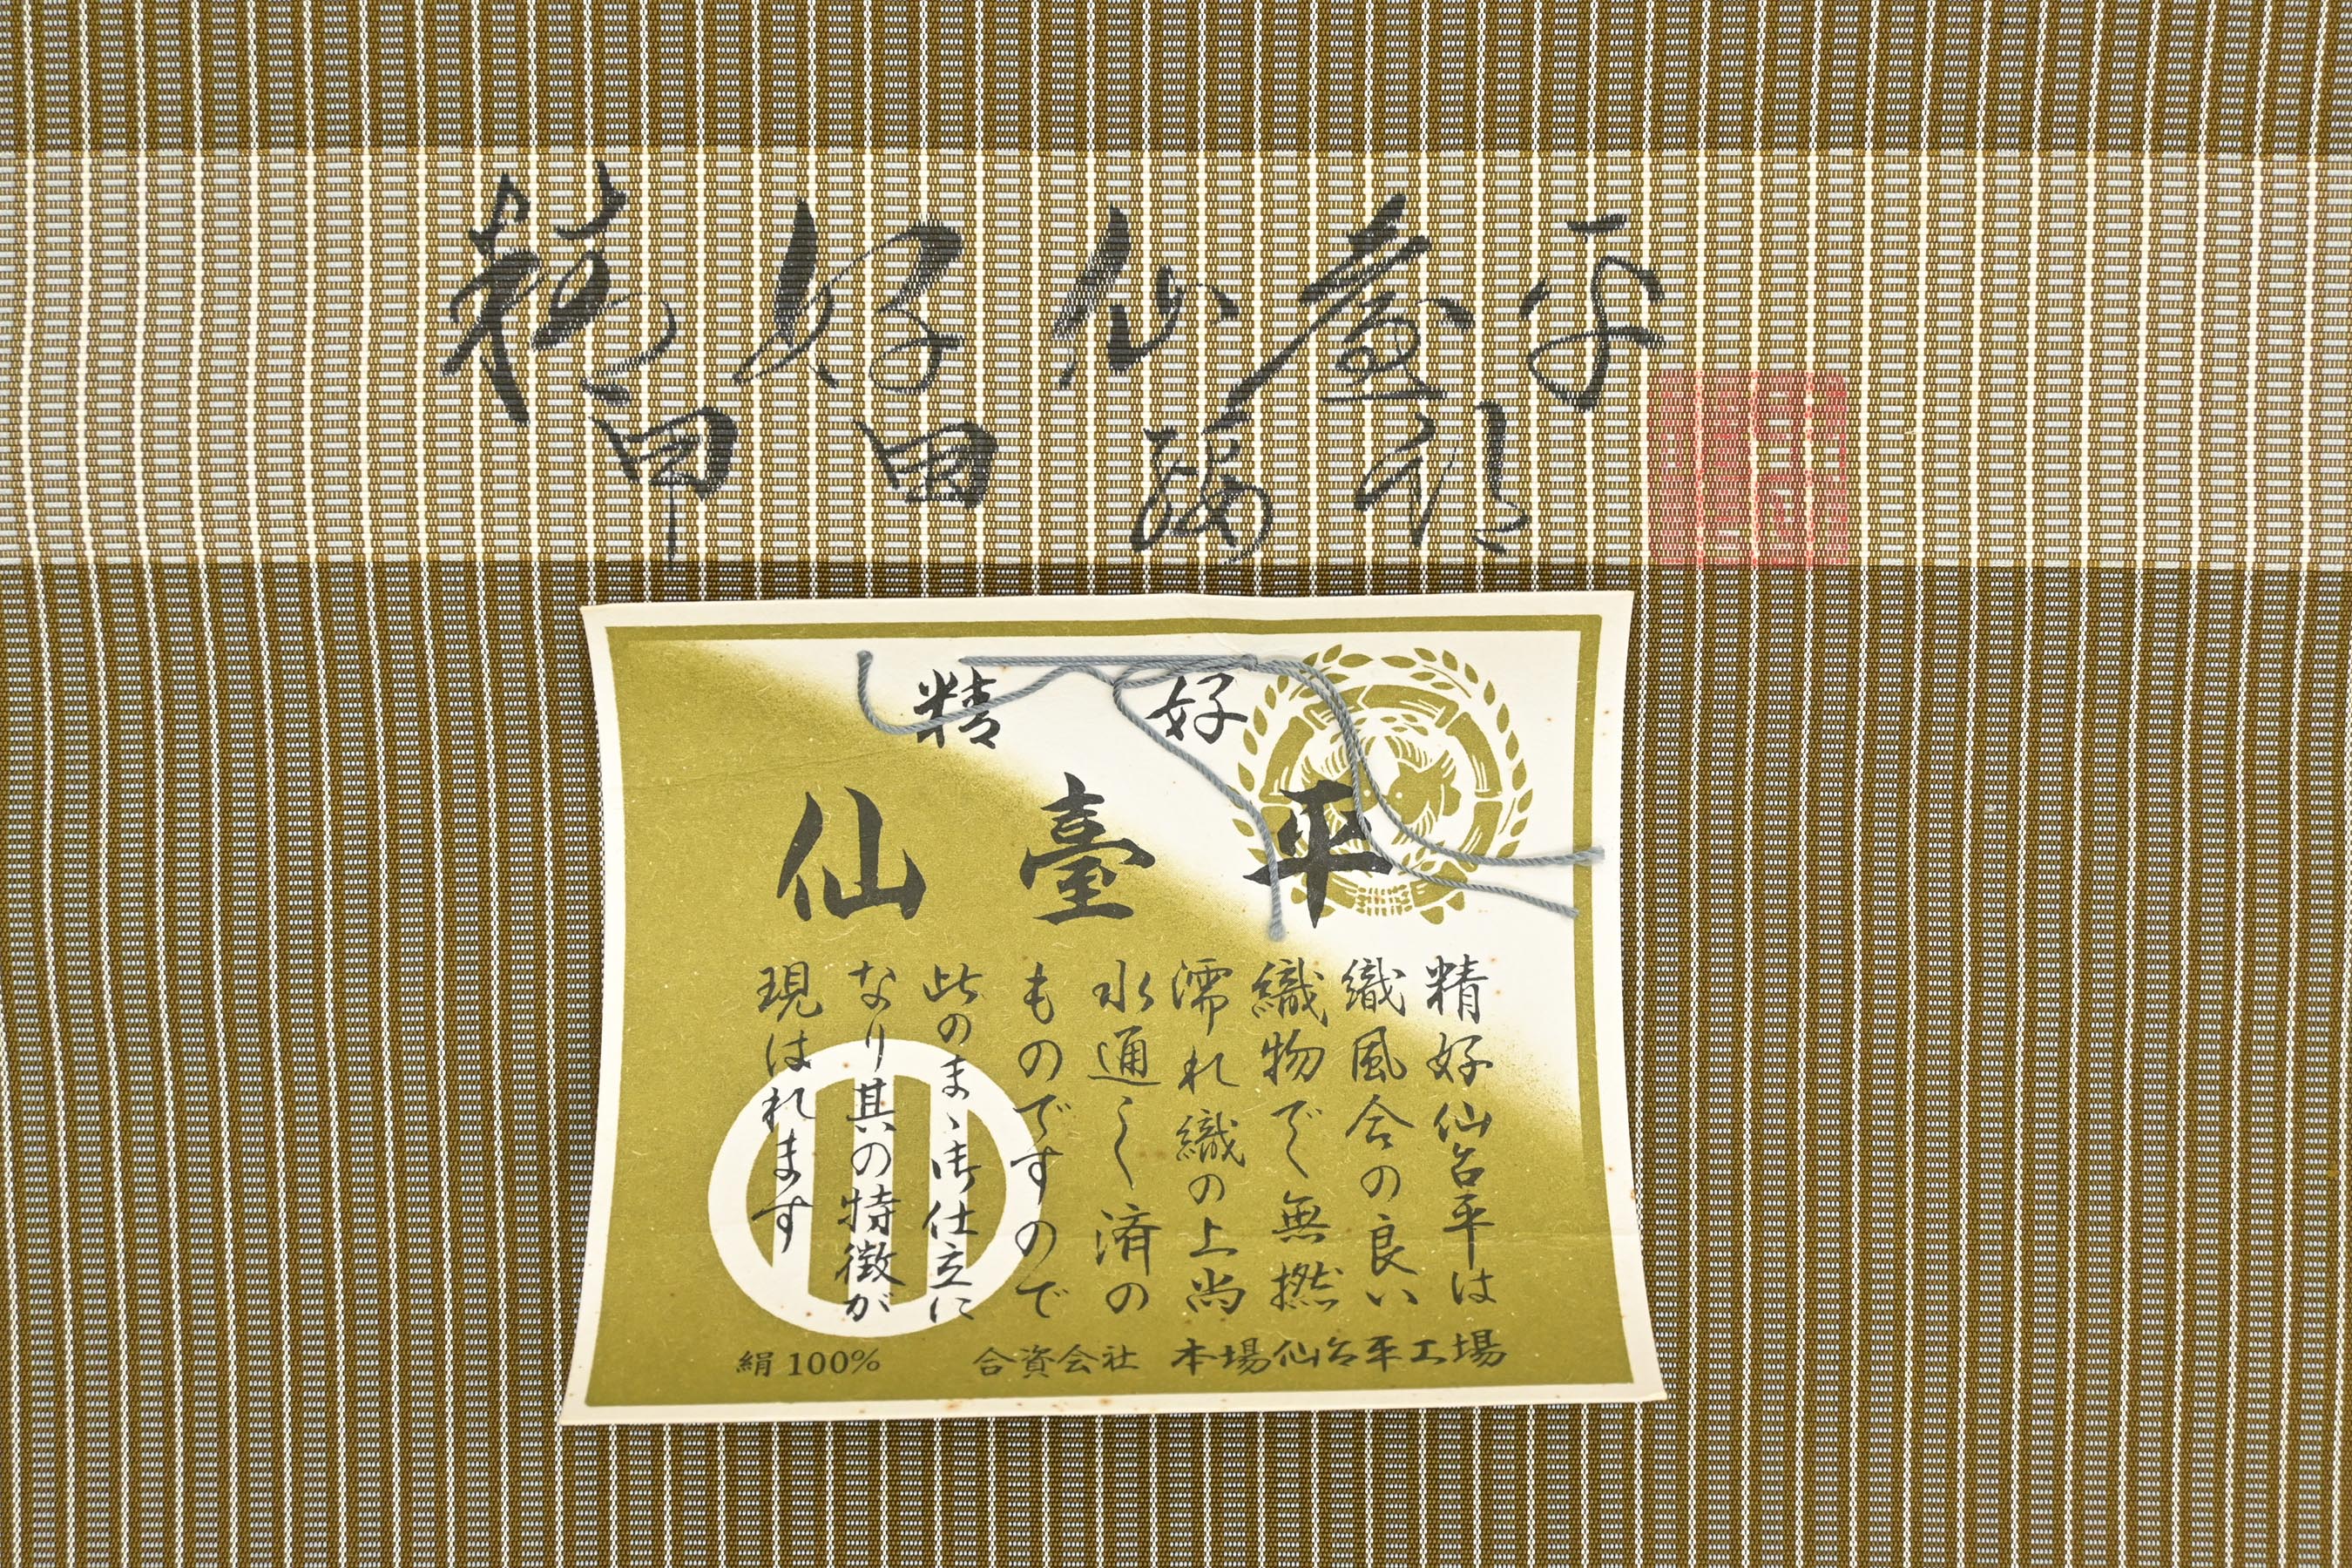 精好仙臺平
甲田綏郎
精好
仙臺平
精好仙台平は
織風合の良い
織物で無撚
濡れ織の上尚
水通し済の
ものですので
此のまゝ御仕立に
なり其の特徴が
現はれます
絹100% 合資会社 本場仙台平工場